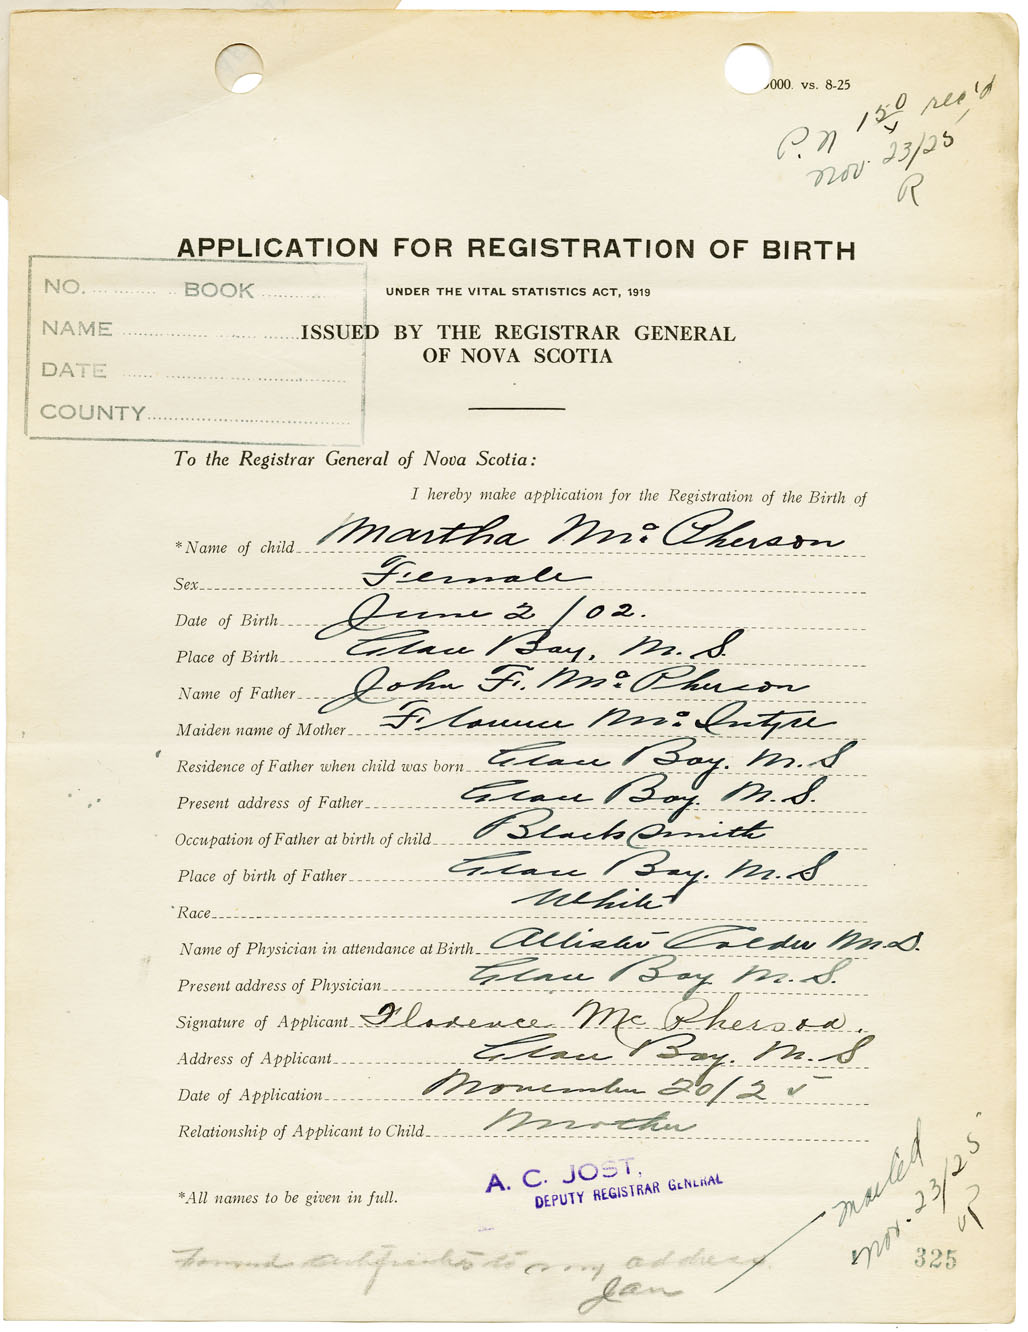 000. vs. 8-25
P.N 1 50 rec'd
Nov. 23/25
R
APPLICATION FOR REGISTRATION OF BIRTH
NO. BOOK
UNDER THE VITAL STATISTICS ACT, 1919
NAME
ISSUED BY THE REGISTRAR GENERAL
OF NOVA SCOTIA
DATE
COUNTY
To the Registrar General of Nova Scotia:
I hereby make application for the Registration of the Birth of
*Name of child Martha Mc Pherson
Sex Female
Date of Birth June 2/02.
Place of Birth Glace Bay, N.S.
Name of Father John F. Mc Pherson
Maiden name of Mother Florence Mc Intyre
Residence of Father when child was born Glace Bay. N.S
Present address of Father Glace Bay. N.S.
Occupation of Father at birth of child Blacksmith
Place of birth of Father Glace Bay. N.S
Race White
Name of Physician in attendance at Birth Allister Calder M.D.
Present address of Physician Glace Bay N.S.
Signature of Applicant Florence Mc Pherson.
Address of Applicant Glace Bay. N.S
Date of Application November 20/25
Relationship of Applicant to Child Mother
A. C. JOST,
DEPUTY REGISTRAR GENERAL
*All names to be given in full.
mailed
Nov. 23/25
R
325
Forward certificate to my address.